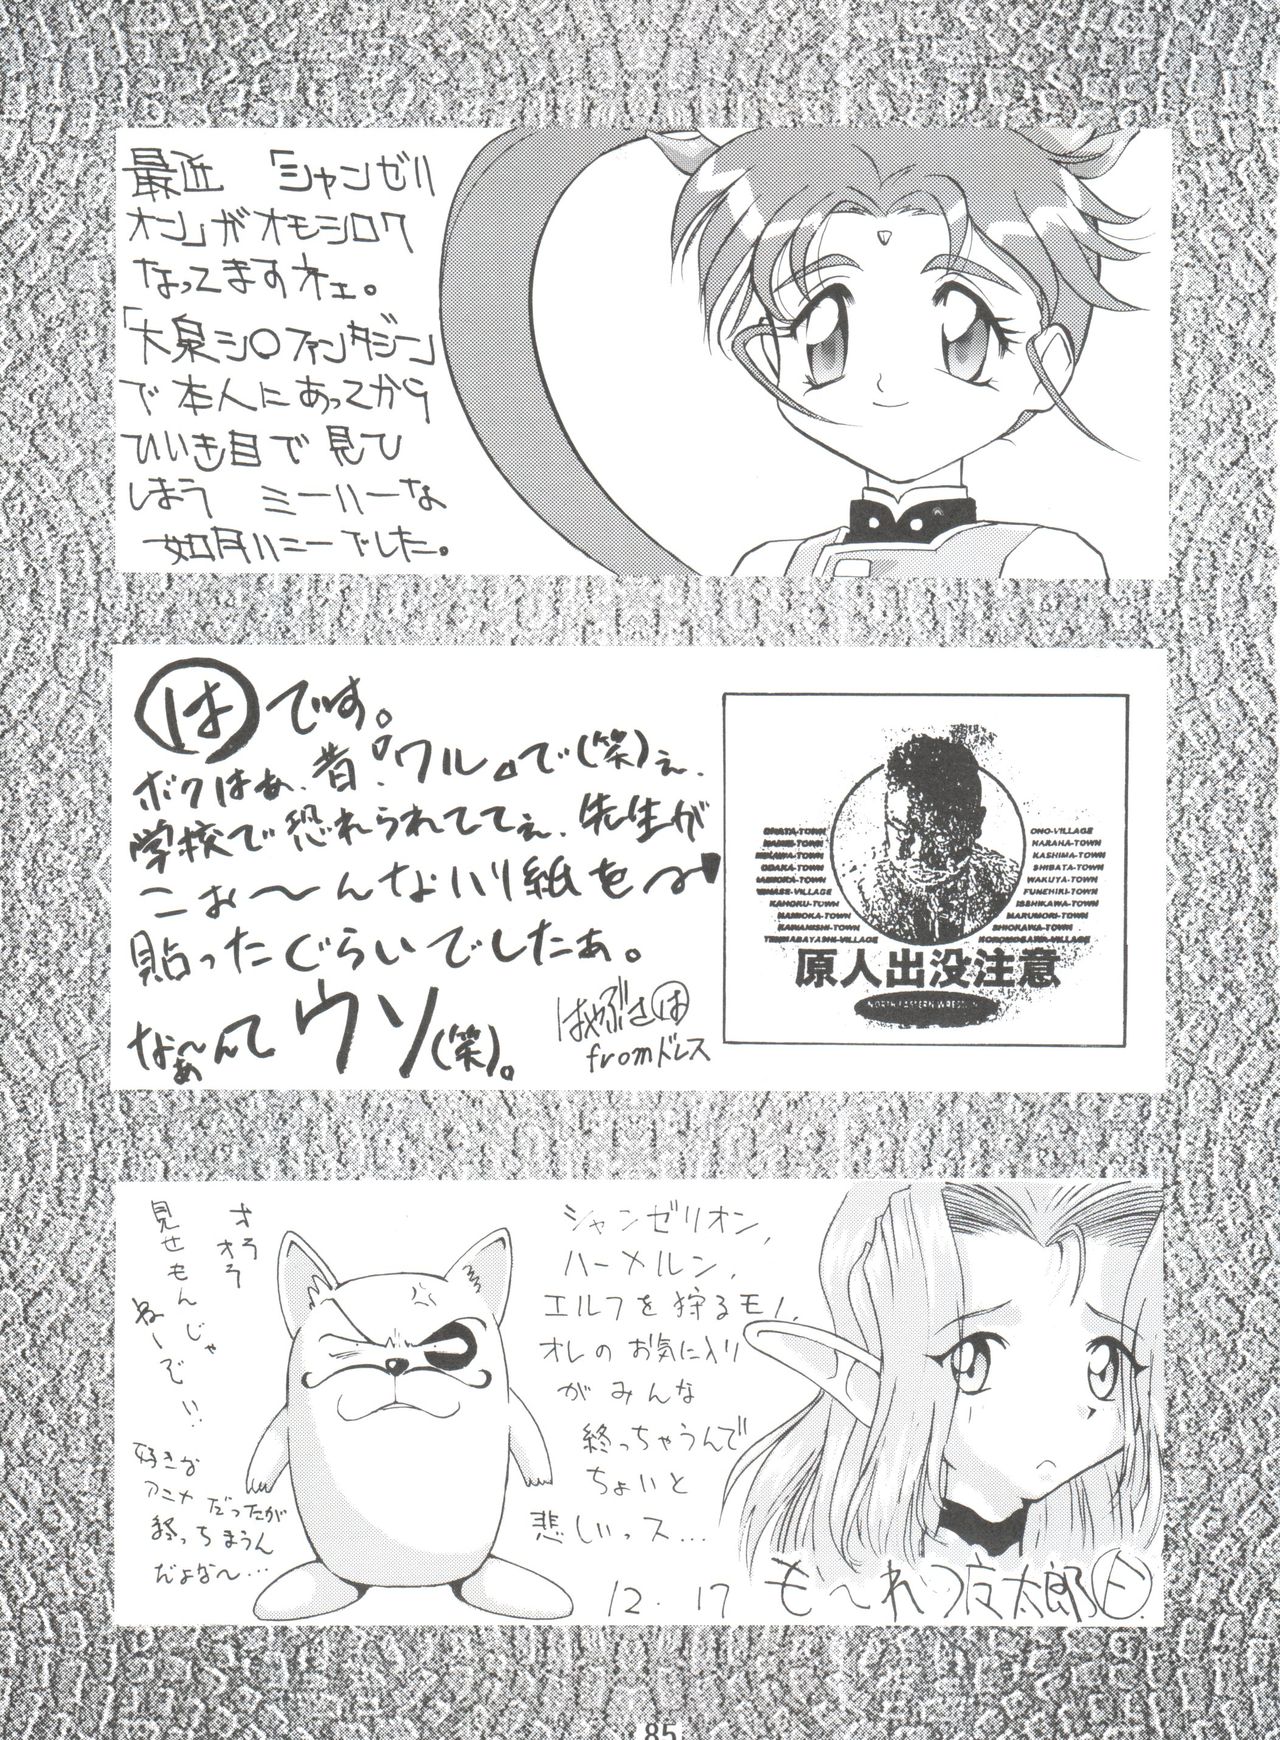 最近 「シャンゼリ
オン」がオモシロク
なってますネェ。
「大泉シ〇ファンタジー」
で本人にあってから
ひいき目で見ひ
しまう ミーハーな
如月ハニーでした。
は です。
ボクはぁ、昔『ワル』で(笑)ぇ、
学校で恐れられててぇ、先生が
こぉ〜んなハリ紙を
貼ったぐらいでしたぁ。
なぁ〜んてウソ(笑)。
はやぶさは
fromドレス
ONO-VILLAGE
NARAHA-TOWN
KASHIMA-TOWN
SHIBATA-TOWN
WAKUYA-TOWN
FUNEHIKI-TOWN
KAHOKU-TOWN
ISSHIKAWA-TOWN
NAMIOKA-TOWN
MARUMORI-TOWN
KAWANISHI-TOWN
SHIOKAWA-TOWN
TENNABAYASHI-VILLAGE
原人出没注意
NORTH EASTERN WRESTLIN
オラオラ
見せもんじゃ
ねーでい!!
好きな
アニメだったが
終っちまうん
だよな〜…
シャンゼリオン、
ハーメルン、
エルフを狩るモノ、
オレのお気に入り
がみんな
終っちゃうんで
ちょいと
悲しいっス…
12.17
も〜れつ夜太郎
85